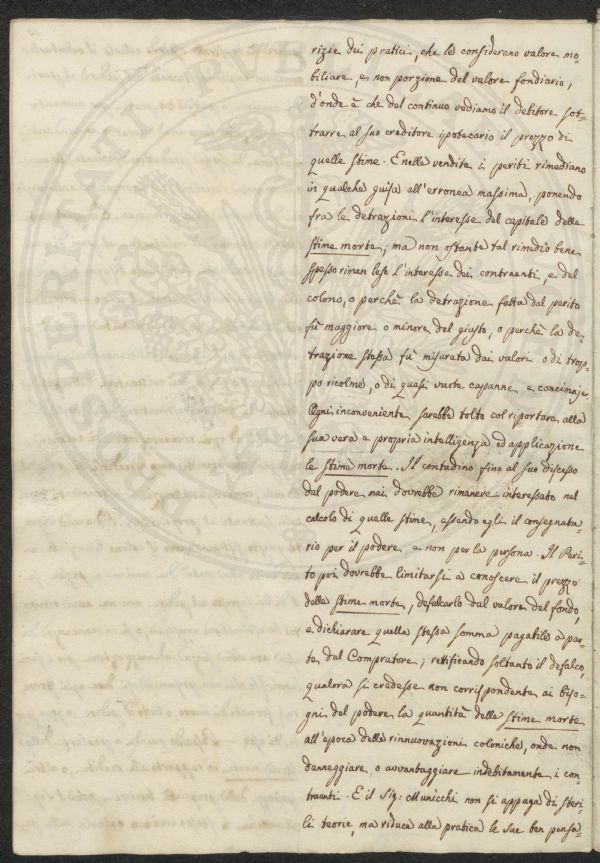 rizie dei pratici, che le considerano valore mo-
biliare, e non porzione del valore fondiario,
d'onde è che del continuo vediamo il debitore sot-
trarre al suo creditore ipotecario il prezzo di
quelle stime. E nelle vendite i periti rimediano
in qualche guisa all'erronea massima, ponendo
fra le detrazioni l'interesse del capitale delle
stime morte; ma non ostante tal rimedio bene
spesso riman leso l'interesse dei contraenti, e del
colono, o perchè la detrazione fatta dal perito
fù maggiore o minore del giusto, o perchè la de-
trazione stessa fù misurata dai valori o di trop-
po ricolme, o di quasi vuote capanne e concimaje.
Ogni inconveniente sarebbe tolto col riportare alla
sua vera e propria intelligenza ed applicazione
le stime morte. Il contadino fino al suo discesso
dal podere mai dovrebbe rimanere interessato nel
calcolo di quelle stime, essendo egli il consegnata-
rio per il podere e non per la persona. Il Peri-
to poi dovrebbe limitarsi a conoscere il prezzo
delle stime morte, defalcarlo dal valore del fondo,
e dichiarare quella stessa somma pagabile a par-
te dal Compratore; rettificando soltanto il defalco,
qualora si credesse non corrispondente ai biso-
gni del podere la quantità delle stime morte
all'epoca delle rinnuovazioni coloniche, onde non
danneggiare o avvantaggiare indebitamente i con-
traenti. E il Sig: Municchi non si appaga di steri-
li teorie, ma riduce alla pratica le sue ben pensa-
PUB